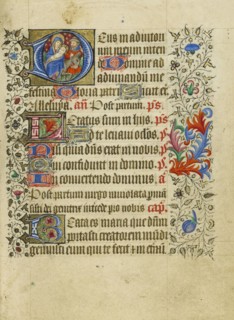 Deus in adiutori
um meum inten
Domine ad
adiuvandū me
festina Gloria patri Sicut erat
Alleluya. añ Post partum. ps
Letatus sum in hijs. ps
Ad te levavi oclos. ps
Nisi quia dñs erat in nobis. ps
Qui confidunt in domino. ps
In convertendo dominus. a
Post partum virgo inviolata pmā
sisti dei genitrix intercede pro nobis cap.
Beata es maria que dñm
portasti creatorem mūdi
genuisti eum qui te fecit et in etnū